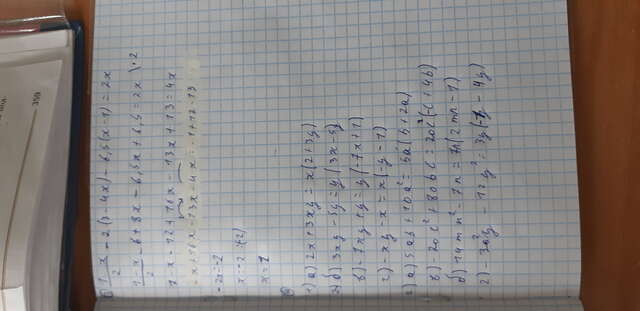 1-x/2 - 2(3-4x) - 6,5(x-1) = 2x
1-x/2 - 6+8x - 6,5x + 6,5 = 2x \·2
1-x - 12+16x - 13x+13 = 4x
-x+16x-13x-4x = -1+12-13
-2x=-2
x=-2:(-2)
x=1
1) а) 2x+3xy = x(2+3y)
б) 3xy-5y = y(3x-5)
в) -7xy+y = y(-7x+1)
г) -xy-x = x(-y-1)
а) 5ab+10a² = 5a(b+2a)
в) -20c²+80bc = 20c(-c+4b)
б) 14mn²-7n = 7n(2mn-1)
359